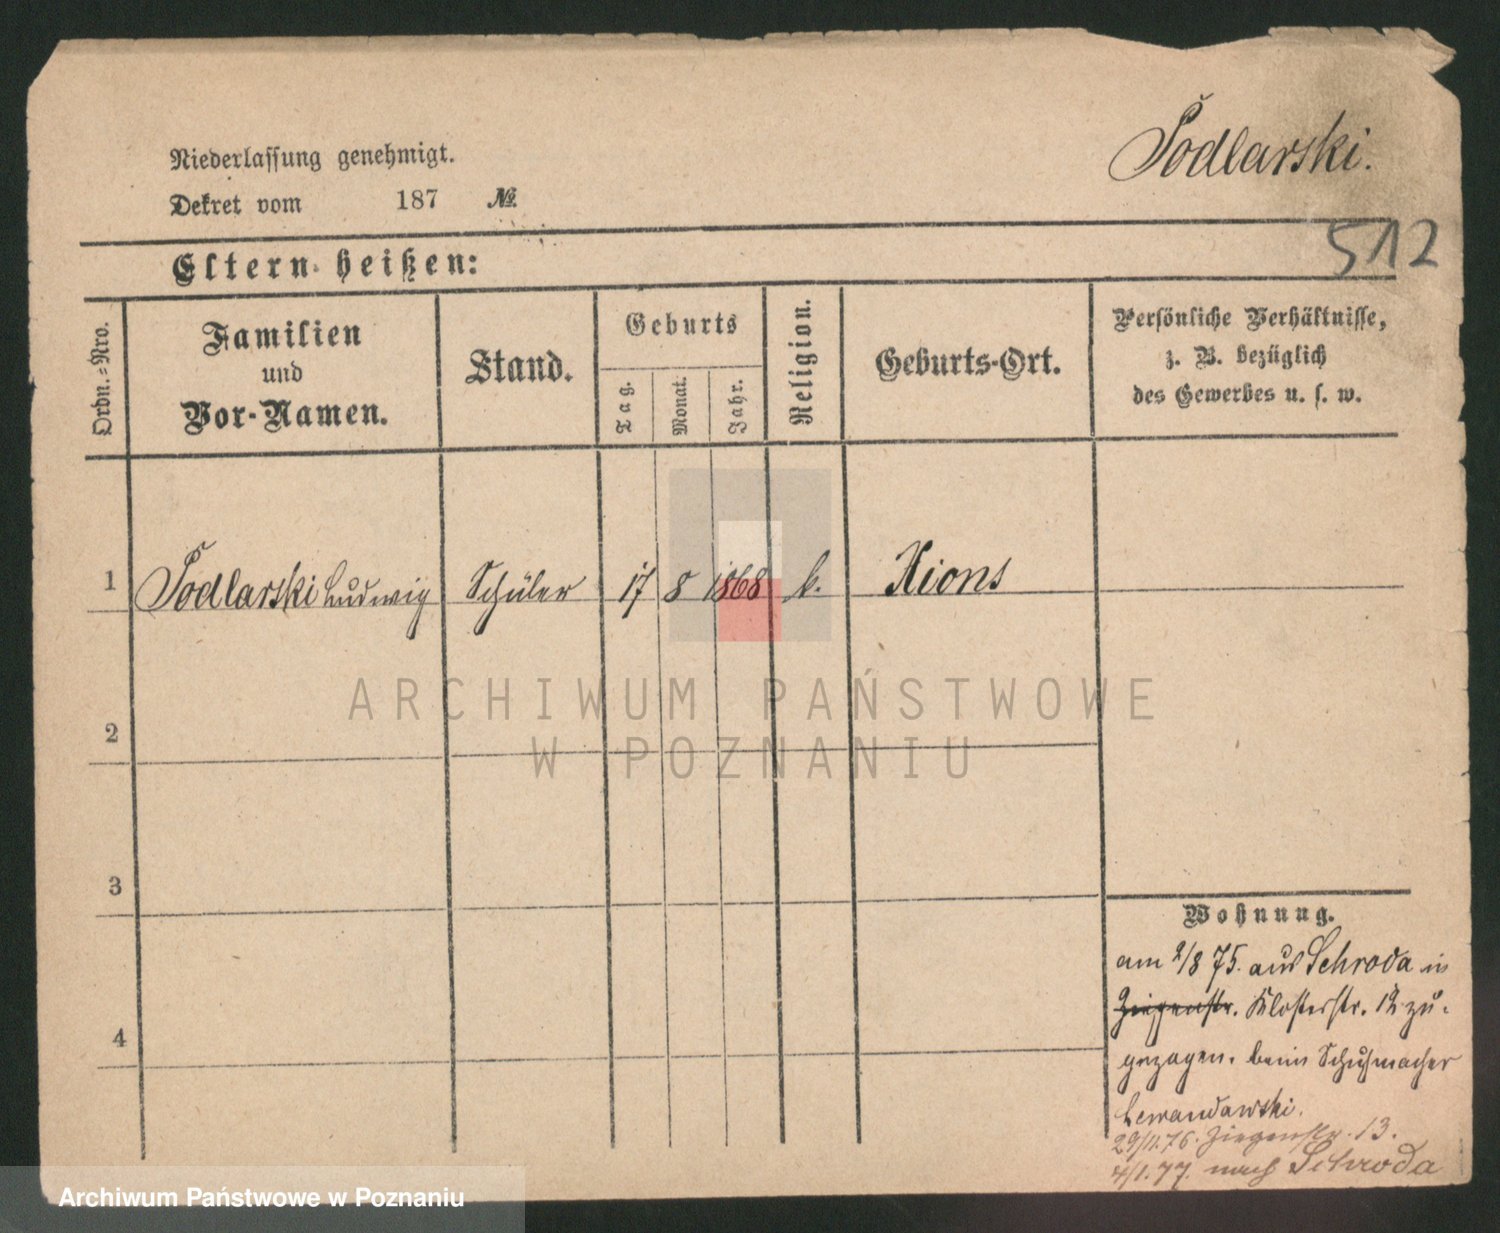 Podlarski.
Niederlassung genehmigt.
Dekret vom 187 №
512
Eltern heißen:
Ordn.-Nro.
Familien
und
Vor-Namen.
Stand.
Geburts
Tag.
Monat.
Jahr.
Religion.
Geburts-Ort.
Persönliche Verhältnisse,
z. B. bezüglich
des Gewerbes u. s. w.
1 Podlarski Ludwig Schüler 17 8 1868 k. Xions
2
3
4
Wohnung.
am 2/8 75. aus Schroda in
Ziegenstr. Klosterstr. 12 zu-
gezogen. beim Schuhmacher
Lewandowski.
29/11.76. Ziegenstr. 13.
4/1.77. nach Schroda
ARCHIWUM PAŃSTWOWE
W POZNANIU
Archiwum Państwowe w Poznaniu